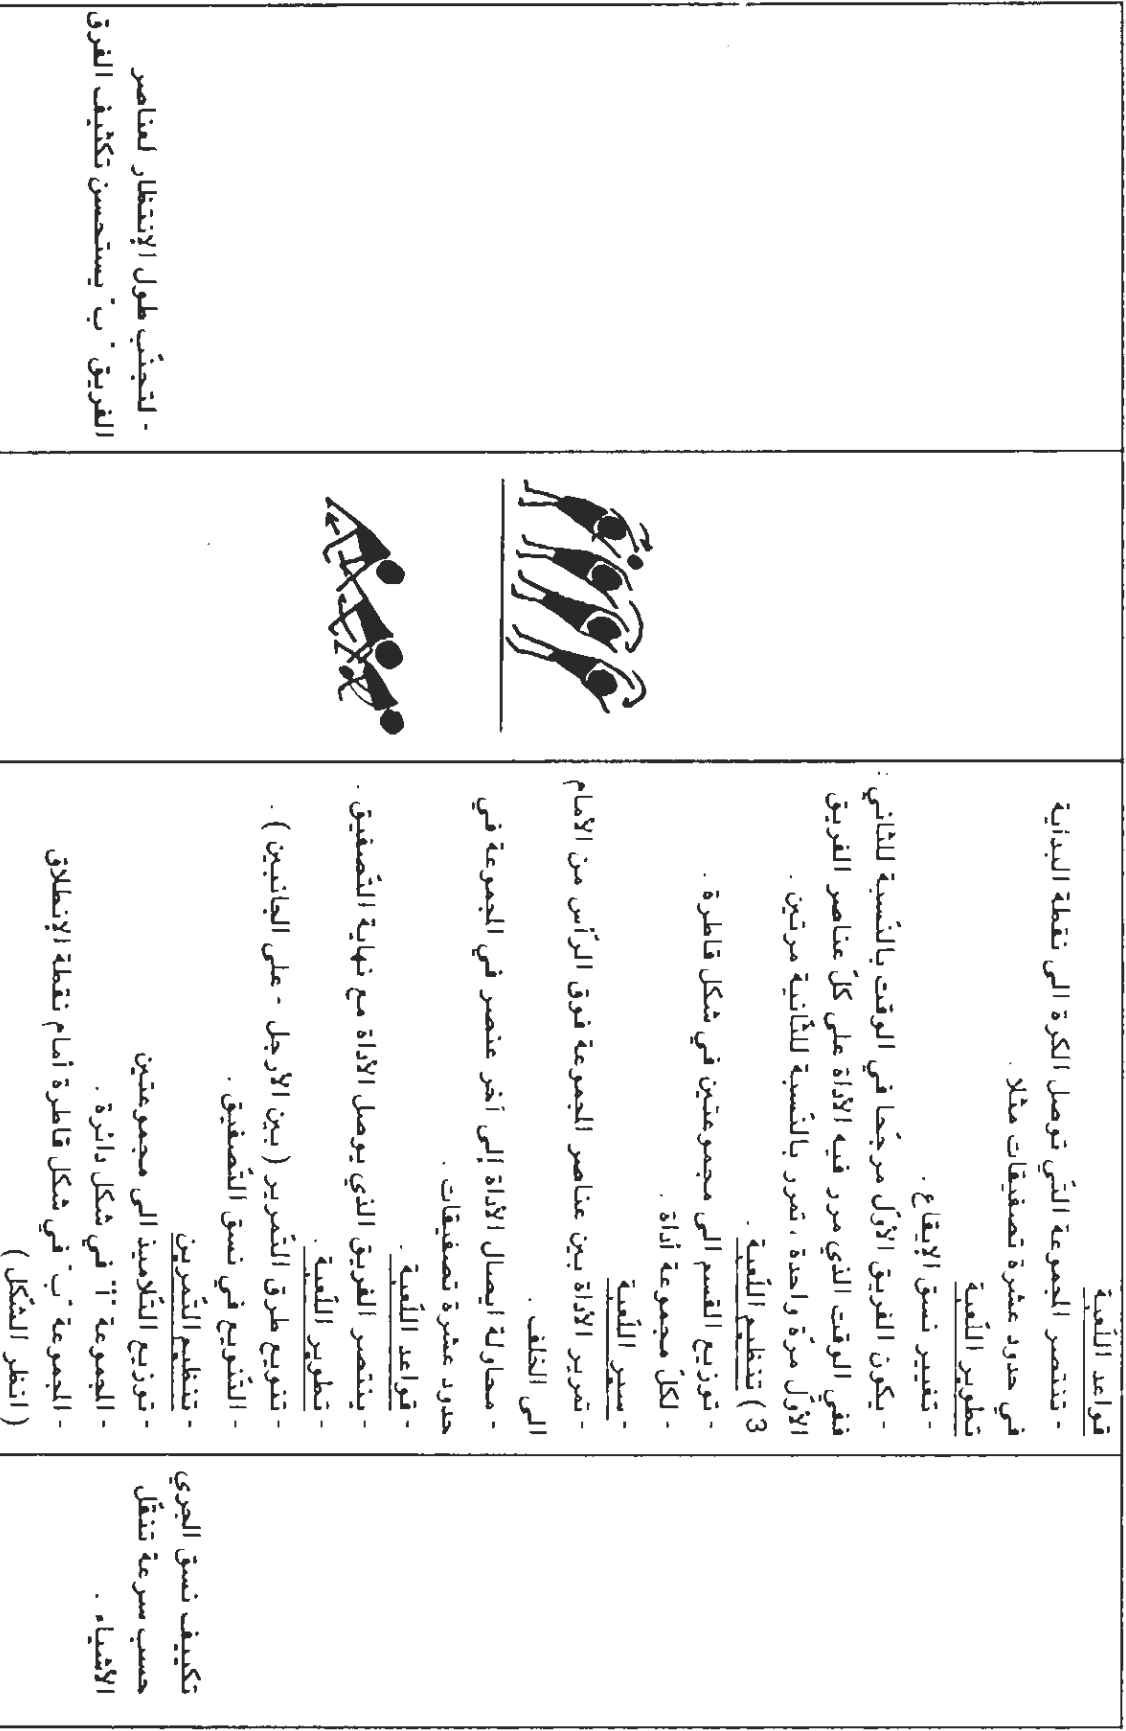 قواعد اللّعبة
- تنتصر المجموعة التّي توصل الكرة الى نقطة البداية
في حدود عشرة تصفيقات مثلا .
تطوير اللّعبة
- تغيير نسق الإيقاع .
- يكون الفريق الأوّل مرجّحا في الوقت بالنّسبة للثّاني :
ففي الوقت الذي مرر فيه الأداة على كلّ عناصر الفريق
الأوّل مرّة واحدة ، تمرر بالنّسبة للثّانية مرتين .
3 ) تنظيم اللّعبة .
- توزيع القسم الى مجموعتين في شكل قاطرة .
- لكلّ مجموعة أداة .
- سير اللّعبة
- تمرير الأداة بين عناصر المجموعة فوق الرّأس من الأمام
الى الخلف .
- محاولة ايصال الأداة إلى آخر عنصر في المجموعة في
حدود عشرة تصفيقات .
- قواعد اللّعبة .
- ينتصر الفريق الذي يوصل الأداة مع نهاية التّصفيق .
- تطوير اللّعبة .
- تنويع طرق التّمرير ( بين الأرجل - على الجانبين ) .
- التّنويع في نسق التّصفيق .
- تنظيم التّمرين
- توزيع التّلاميذ الى مجموعتين
- المجموعة "أ" في شكل دائرة .
- المجموعة "ب" في شكل قاطرة أمام نقطة الإنطلاق
( انظر الشّكل )
تكييف نسق الجري
حسب سرعة تنقّل
الأشياء .
- لتجنّب طول الإنتظار لعناصر
الفريق " ب " يستحسن تكثيف الفرق